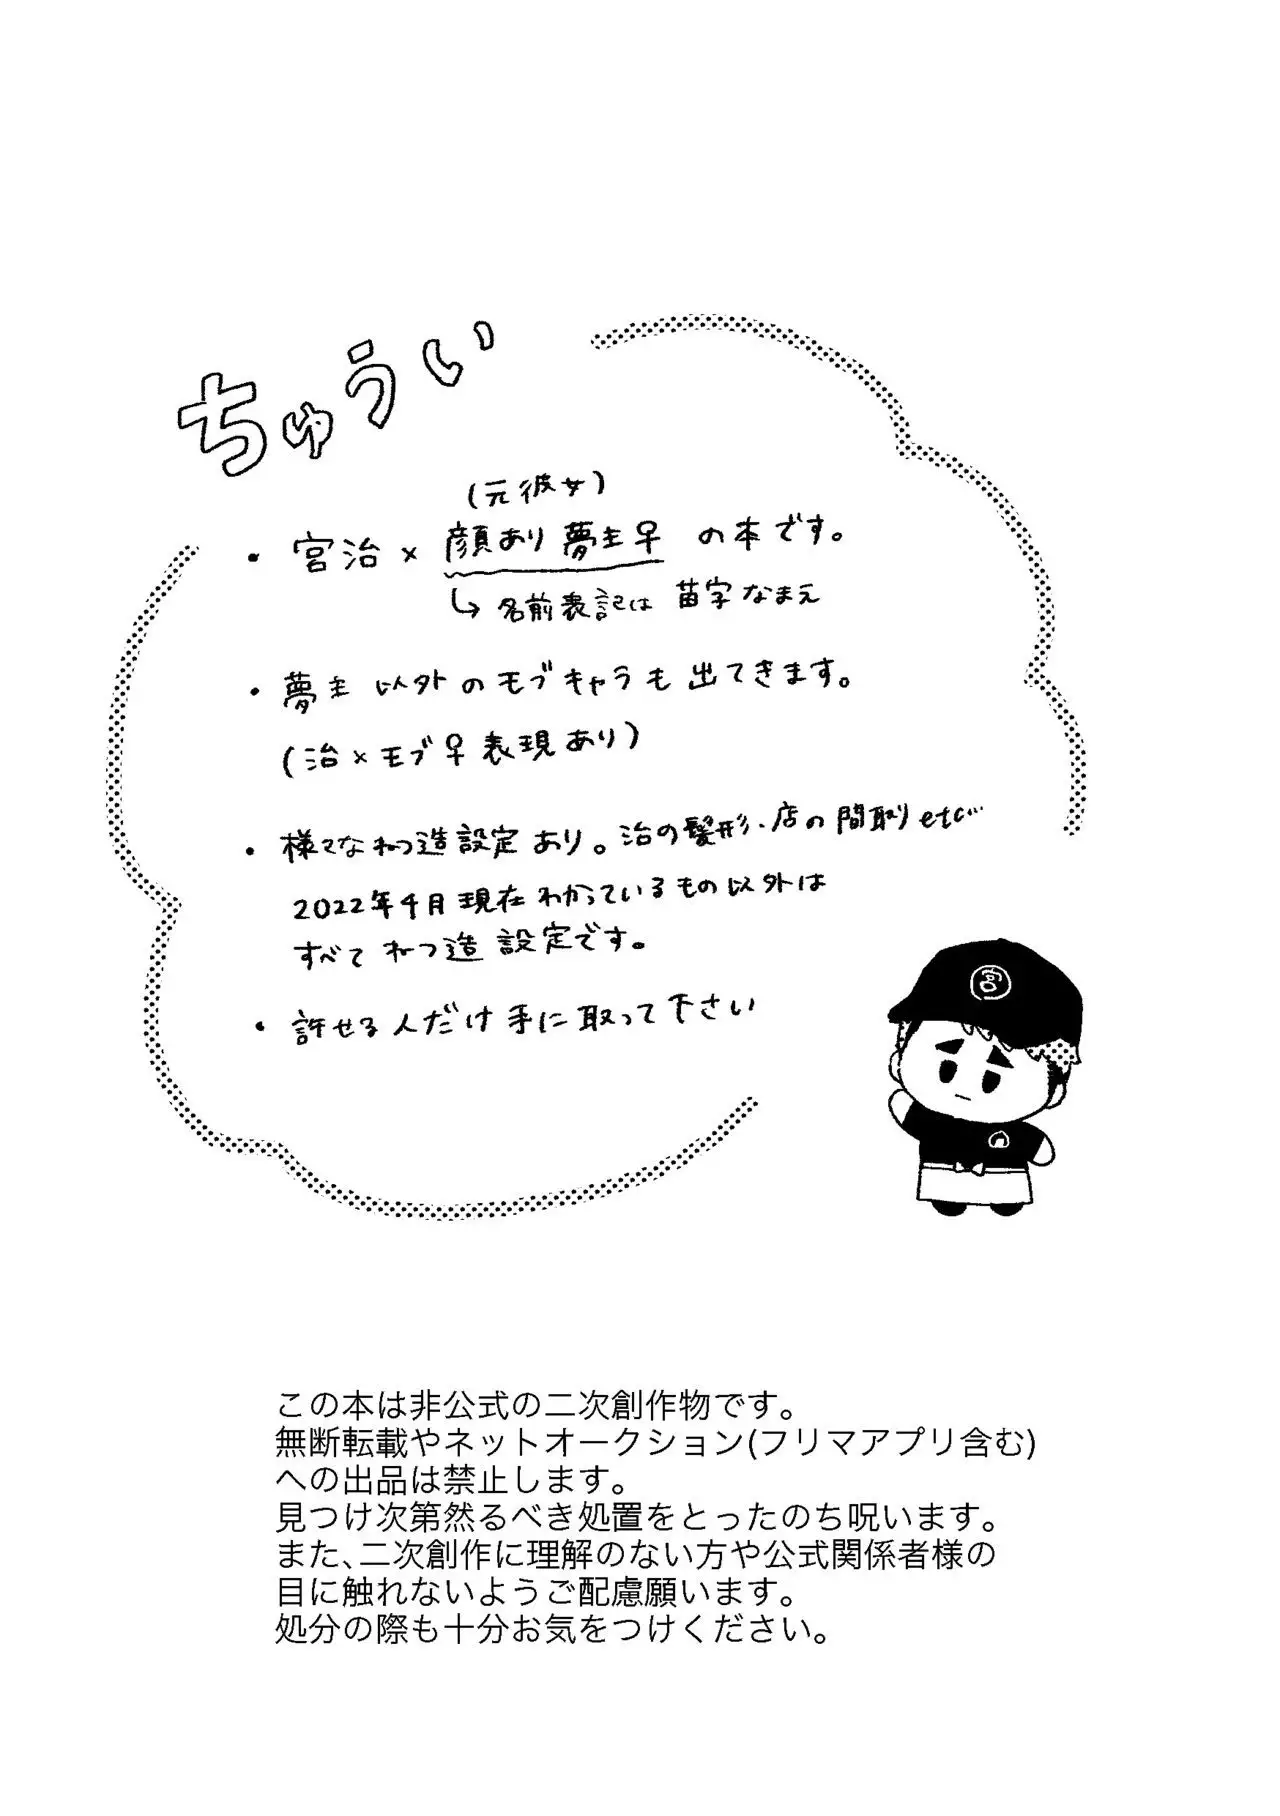 ちゅうい
(元彼女)
・宮治×顔あり夢主♀の本です。
↳名前表記は 苗字なまえ
・夢主以外のモブキャラも出てきます。
(治×モブ♀表現あり)
・様々なねつ造設定あり。治の髪形、店の間取りetc…
2022年4月現在わかっているもの以外は
すべてねつ造設定です。
・許せる人だけ手に取って下さい
宮
この本は非公式の二次創作物です。
無断転載やネットオークション(フリマアプリ含む)
への出品は禁止します。
見つけ次第然るべき処置をとったのち呪います。
また、二次創作に理解のない方や公式関係者様の
目に触れないようご配慮願います。
処分の際も十分お気をつけください。